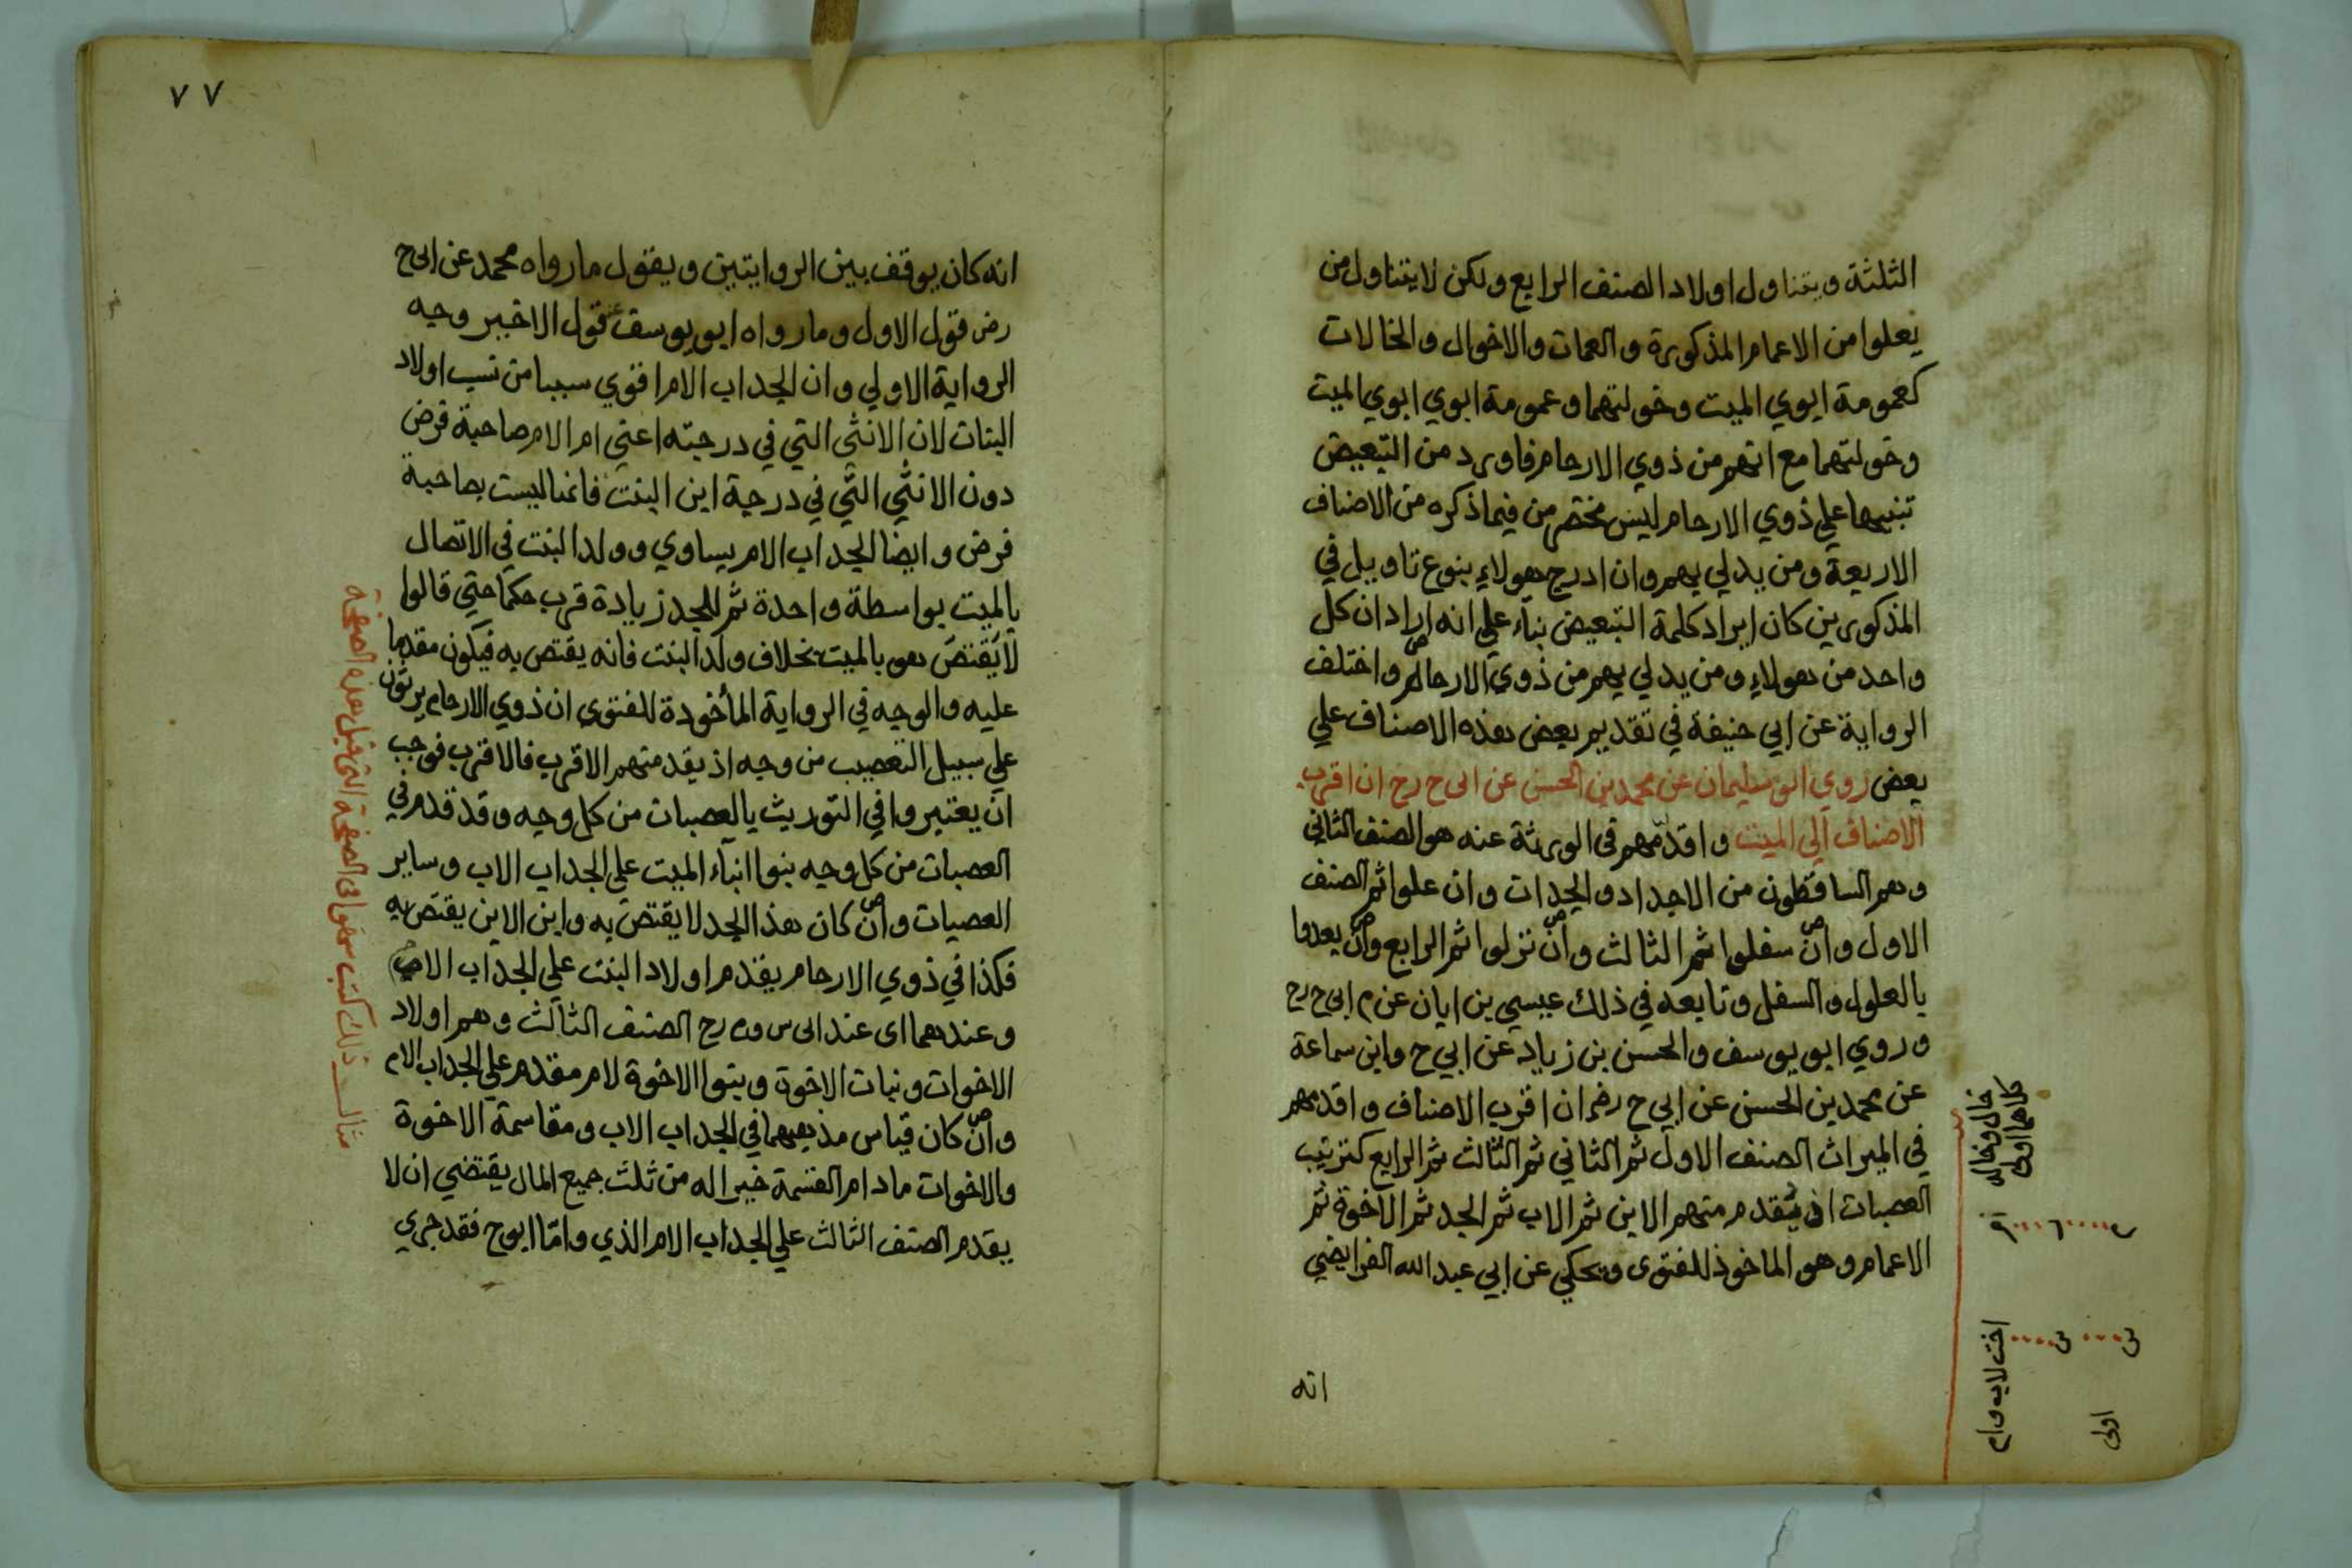 الثلثة ويتناول اولاد الصنف الرابع ولكن لا يتناول من
يعلوا من الاعمام المذكورة والعمات والاخوال والخالات
كعمومة ابوي الميت وخولتهما وعمومة ابوي ابوي الميت
وخولتهما مع انهم من ذوي الارحام فاورد من التبعيض
تنبيها علي ذوي الارحام ليس منحصر من فيما ذكره من الاصناف
الاربعة ومن يدلي بهم وان ادرج هولاء بنوع تاويل في
المذكورين كان ايراد كلمة التبعيض بناء علي انه اراد ان كل
واحد من هولاء ومن يدلي بهم من ذوي الارحام واختلف
الرواية عن ابي حنيفة في تقديم بعض هذه الاصناف علي
بعض روي ابو سليمان عن محمد بن الحسن عن ابى ح رح ان اقرب
الاصناف الي الميت واقدمهم فى الورثة عنه هو الصنف الثاني
وهم الساقطون من الاجداد والجدات وان علوا ثم الصنف
الاول وان سفلوا ثم الثالث وان نزلوا ثم الرابع وان بعدوا
بالعلول والسفل وتابعه في ذلك عيسي بن ابان عن م ابى ح رح
وروي ابو يوسف والحسن بن زياد عن ابي ح وابن سماعة
عن محمد بن الحسن عن ابي ح رض ان اقرب الاصناف واقدمهم
في الميراث الصنف الاول ثم الثاني ثم الثالث ثم الرابع كترتيب
العصبات اذ يقدم منهم الابن ثم الاب ثم الجد ثم الاخوة ثم
الاعمام وهو الماخوذ للفتوى ويحكي عن ابي عبد الله الفرايضي
انه
خال وخالة
كلاهما اولى
اخت لاب وام
اولى
٧٧
انه كان يوقف بين الروايتين ويقول ما رواه محمد عن ابى ح
رض قول الاول وما رواه ابو يوسف عنه قول الاخير وجه
الرواية الاولي وان الجد اب الام اقوي سببا من نسب اولاد
البنات لان الانثي التي في درجته اعني ام الام صاحبة فرض
دون الانثي التي في درجة ابن البنت فانها ليست بصاحبة
فرض وايضا الجد اب الام يساوي وولد البنت في الاتصال
بالميت بواسطة واحدة ثم للجد زيادة قرب حكما حتي قالوا
لا يقتص هو بالميت بخلاف ولد البنت فانه يقتص به فيكون مقدما
عليه والوجه في الرواية المأخودة للفتوى ان ذوي الارحام يرثون
علي سبيل التعصيب من وجه اذ يقدم منهم الاقرب فالاقرب فوجب
ان يعتبروا في التوريث بالعصبات من كل وجه وقد قدم في
العصبات من كل وجه بنوا ابناء الميت علي الجد اب الاب وساير
العصبات وان كان هذا الجد لا يقتص به وابن الابن يقتص به
فكذا في ذوي الارحام يقدم اولاد البنت علي الجد اب الام
وعندهما اى عند ابى س وم رح الصنف الثالث وهم اولاد
الاخوات وبنات الاخوة وبنوا الاخوة لام مقدم علي الجد اب الام
وان كان قياس مذهبهما في الجد اب الاب ومقاسمة الاخوة
والاخوات ما دام القسمة خيرا له من ثلث جميع المال يقتضي ان لا
يقدم الصنف الثالث علي الجد اب الام الذي واما ابو ح فقد جري
مثال ذلك كتب سهوا فى الصفحة التى قبل هذه الصفحة